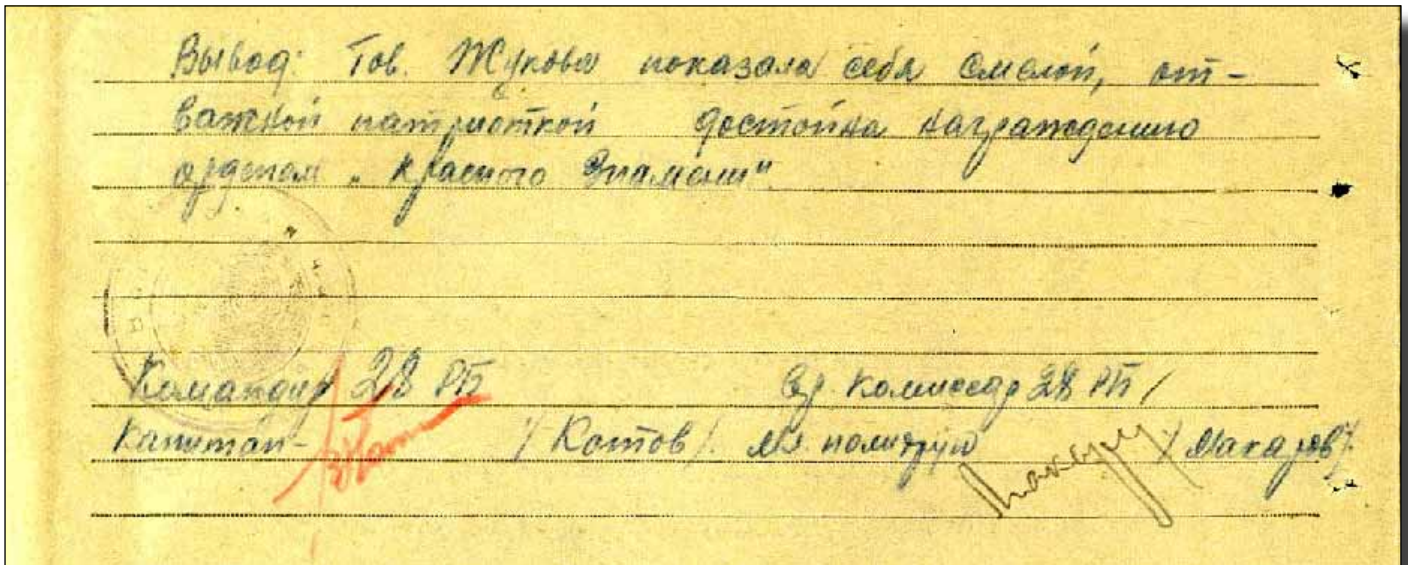 Вывод: Тов. Жукова показала себя смелой, от-
важной патриоткой достойна награждению
орденом „Красного Знамени"
Командир 28 РБ Вр. Комиссар 28 РБ /
Капитан- / Котов /. Мл. политрук / Макаров /.